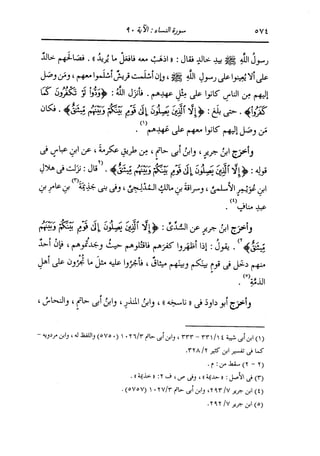 ٥٧٤ سورة النساء : الآية ٩٠
رسولُ اللهِ ﷺ بيدِ خالدٍ فقال : « اذهَبْ معه فافعَلْ ما يُريدُ » . فصالَحهم خالدٌ
على ألا يُعينوا على رسولِ اللهِ ﷺ ، وإن أسلَمت قريشٌ أسْلَموا معهم ، ومَن وصَل
إليهم مِن الناسِ كانوا على مِثلِ عهدِهم . فأنزَل اللهُ : ﴿ وَدُّوا لَوْ تَكْفُرُونَ كَمَا
كَفَرُوا ﴾ . حتى بلَغ : ﴿ إِلَّا الَّذِينَ يَصِلُونَ إِلَى قَوْمٍ بَيْنَكُمْ وَبَيْنَهُم مِّيثَاقٌ ﴾ . فكان
مَن وصَل إليهم كانوا معهم على عَهدِهم (١) .
وأخرَج ابنُ جريرٍ ، وابنُ أبى حاتمٍ ، مِن طريقِ عكرمةَ ، عن ابنِ عباسٍ فى
قولِه : ﴿ إِلَّا الَّذِينَ يَصِلُونَ إِلَى قَوْمٍ بَيْنَكُمْ وَبَيْنَهُم مِّيثَاقٌ ﴾ . (٢) قال : نزَلت فى هلالِ
ابنِ عُوَيمرٍ الأسلمىِّ ، وسراقةَ بنِ مالكٍ المُدْلِجىِّ ، وفى بنى جَذِيمةَ (٣) بنِ عامرِ بنِ
عبدِ منافٍ (٤) .
وأخرَج ابنُ جريرٍ عن السُّدىِّ : ﴿ إِلَّا الَّذِينَ يَصِلُونَ إِلَى قَوْمٍ بَيْنَكُمْ وَبَيْنَهُم
مِّيثَاقٌ ﴾ (٢) . يقولُ : إذا أظهَروا كفرَهم فاقتُلوهم حيثُ وجَدتُموهم ، فإن أحدٌ
منهم دخَل فى قومٍ بينَكم وبينَهم ميثاقٌ ، فأجْرُوا عليه مثلَ ما تُجْرُون على أهلِ
الذمةِ (٥) .
وأخرَج أبو داودَ فى « ناسخِه » ، وابنُ المنذرِ ، وابنُ أبى حاتمٍ ، والنحاسُ ،
(١) ابن أبى شيبة ٣٣١/١٤ - ٣٣٣ ، وابن أبى حاتم ١٠٢٦/٣ (٥٧٥٠) واللفظ له ، وابن مردويه -
كما فى تفسير ابن كثير ٣٢٨/٢ .
(٢ - ٢) سقط من : م .
(٣) فى الأصل : « حديثة » ، وفى ص ، ف ٢ : « خذيمة » .
(٤) ابن جرير ٢٩٣/٧ ، وابن أبى حاتم ١٠٢٧/٣ (٥٧٥٧) .
(٥) ابن جرير ٢٩٢/٧ .